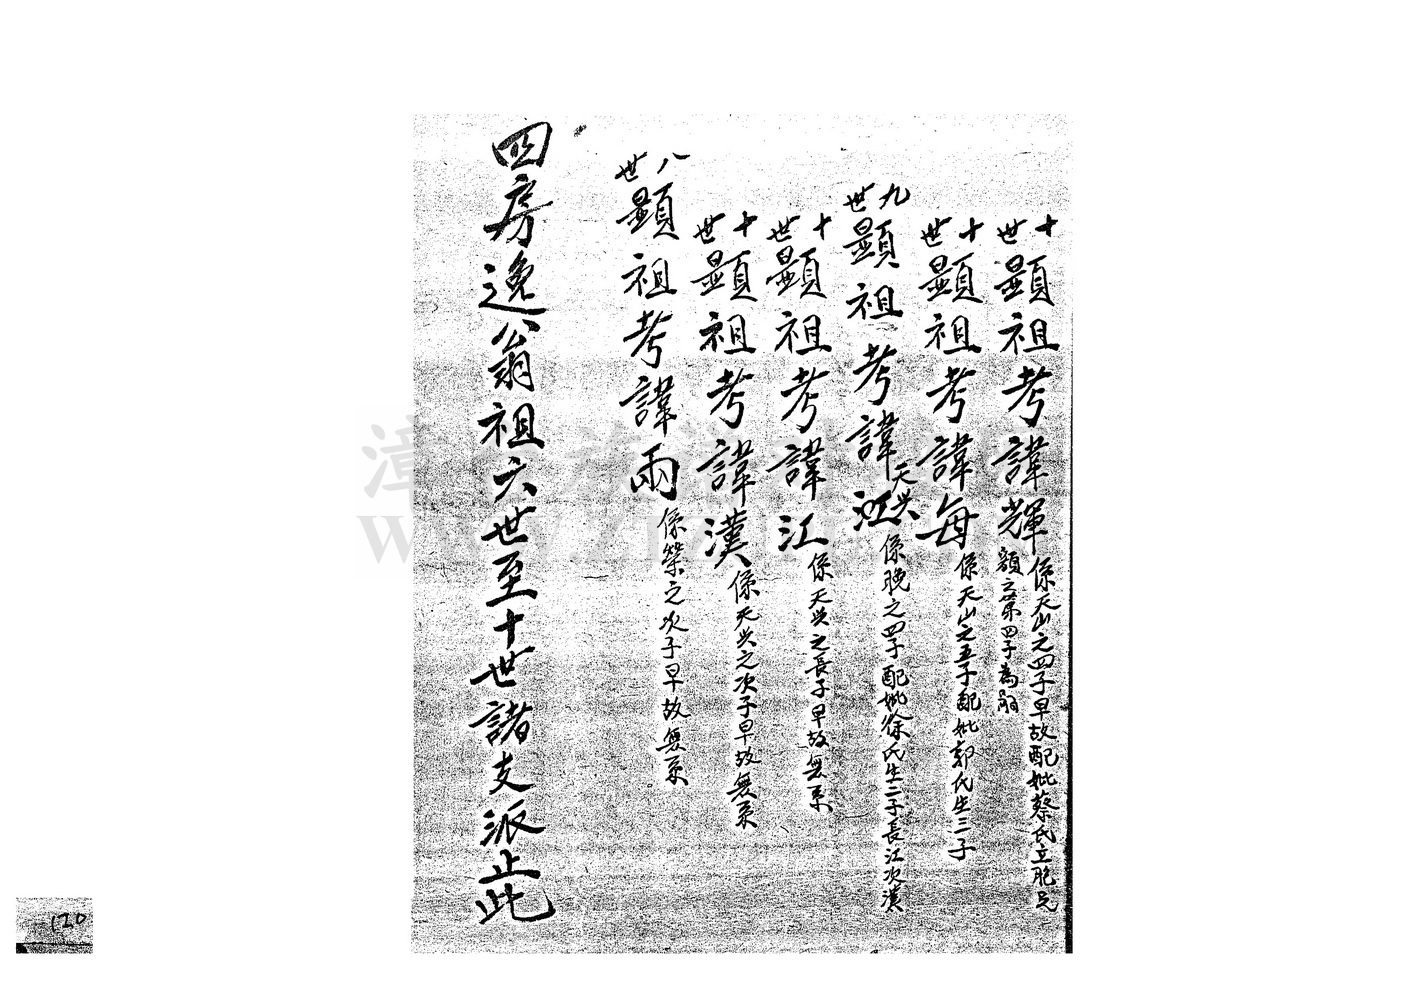 十世顯祖考諱輝係天山之四子早故配妣蔡氏立胞兄
額之第四子為嗣
十世顯祖考諱每係天山之五子配妣郭氏生三子
九世顯祖考諱江天兴係晚之四子配妣徐氏生二子長江次漢
十世顯祖考諱江係天兴之長子早故無系
十世顯祖考諱漢係天兴之次子早故無系
八世顯祖考諱雨係榮之次子早故無系
四房逸翁祖六世至十世諸支派止此
120